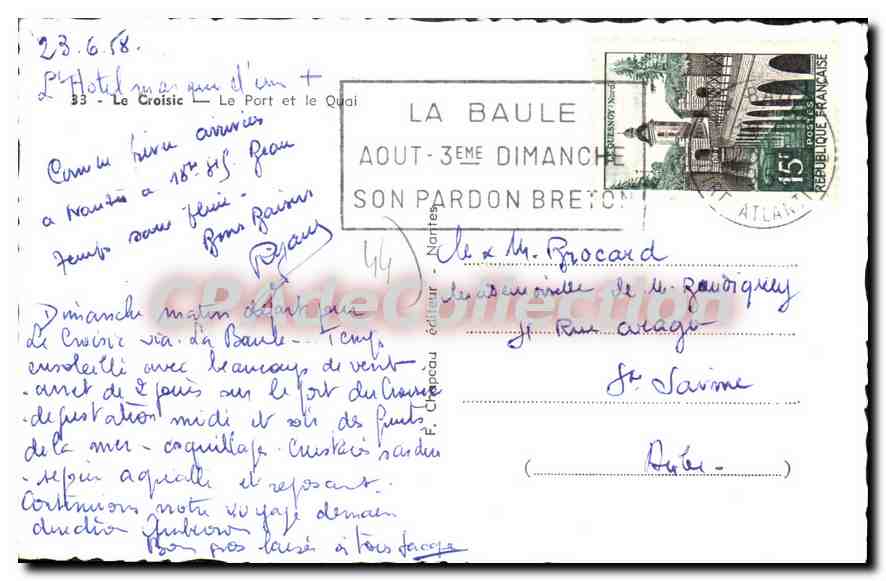 23.6.58.
L'Hotel marqué d'une +
33 - Le Croisic — Le Port et le Quai
Comme prévu arrivées
a Nantes a 18h Beau
temps sans pluie -
Bons Baisers
44
Dimanche matin départ pour
Le Croisic via La Baule - Temps
ensoleillé avec beaucoup de vent
- arret de 2 jours sur le port du Croisic
- dégustation midi et soir des fruits
de la mer - coquillage - Crustacés sardines
- séjour agréable et reposant.
Continuons notre voyage demain
direction
Bon gros baisés à tous Jacques
F. Chapeau éditeur - Nantes
LA BAULE
AOUT - 3EME DIMANCHE
SON PARDON BRETON
LE QUESNOY - Nord
15F
POSTES
REPUBLIQUE FRANÇAISE
ATLANT
M. Brocard
Rue Arago
Ste Savine
(Aube)
CPAdeCollection